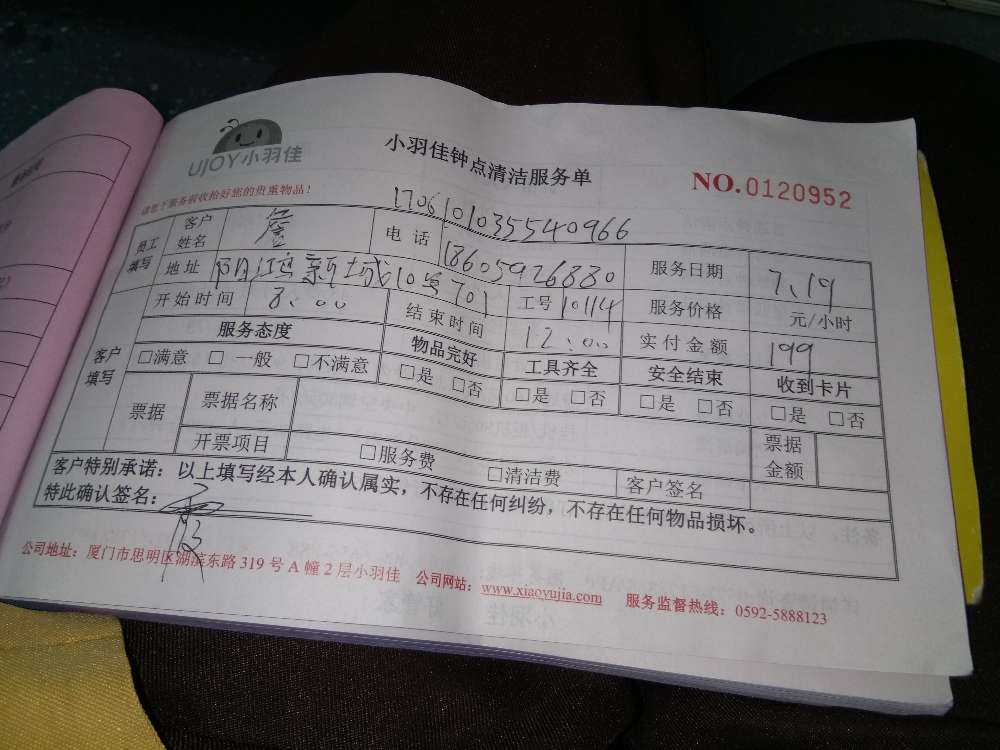 UJOY小羽佳
小羽佳钟点清洁服务单
NO.0120952
请您于服务前收拾好您的贵重物品!
17061010355540966
员工填写 客户姓名 电话 18605926880 服务日期 7、19
地址 阳江新城10号701 工号 10114 服务价格 元/小时
开始时间 8:00 结束时间 12:00 实付金额 199
客户填写 服务态度 物品完好 工具齐全 安全结束 收到卡片
□满意 □一般 □不满意 □是 □否 □是 □否 □是 □否 □是 □否
票据 票据名称 票据金额
开票项目 □服务费 □清洁费 客户签名
客户特别承诺:以上填写经本人确认属实,不存在任何纠纷,不存在任何物品损坏。
特此确认签名:
公司地址:厦门市思明区湖滨东路319号A幢2层小羽佳 公司网站:www.xiaoyujia.com 服务监督热线:0592-5888123